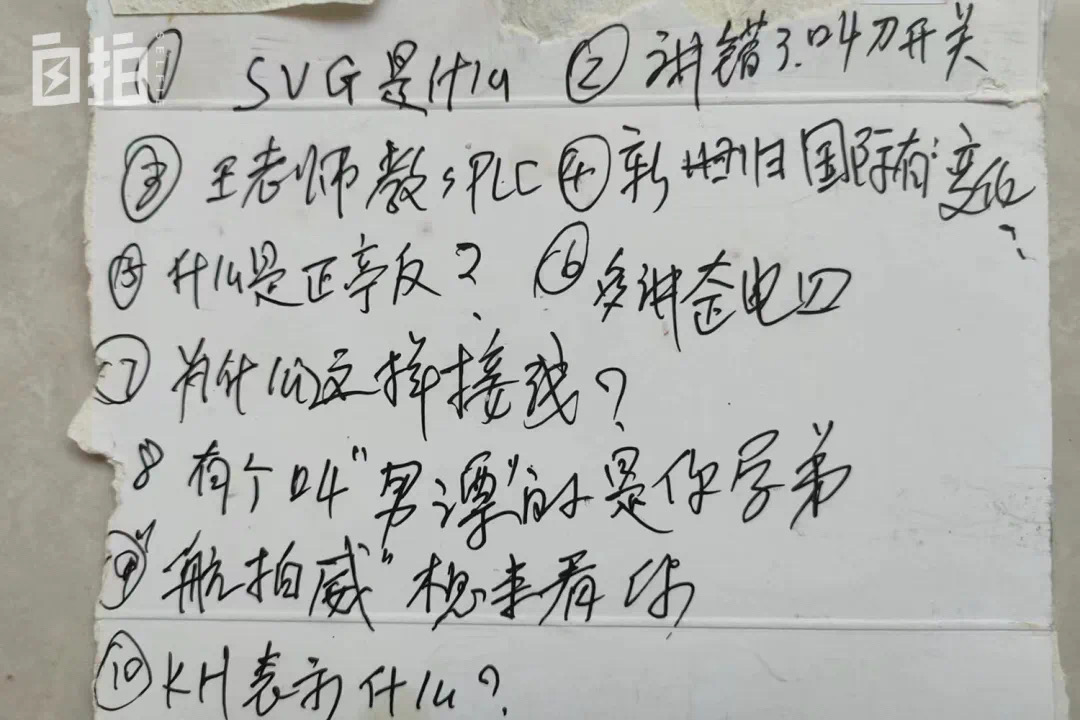 自拍
① SVG是什么 ② 讲错了.叫刀开关
③ 王老师教:PLC ④ 新 旧国际有变化
⑤ 什么是正停反? ⑥ 多讲 电
⑦ 为什么这样接线?
8 有个叫"男漂"的是你学弟
⑨ "航拍威"想来看你
⑩ KH表示什么?